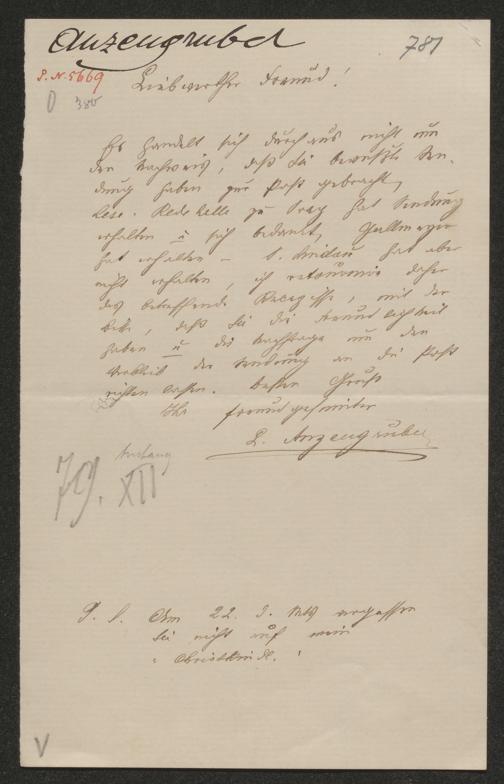 Anzengruber
781
P. N. 5669
380
Liebwerther Freund!
Es handelt sich durchaus nicht um
den Nachweis, daß Sie bewußte Sen-
dung haben zur Post gebracht,
Lese- & Redehalle zu Prag hat Sendung
erhalten u sich bedankt, Gallmeyer
hat erhalten — Lindau hat aber
nicht erhalten, ich retournire daher
das betreffende Recepisse, mit der
Bitte, daß Sie die Freundlichkeit
haben u die Nachfrage um den
Verbleib der Sendung an die Post
richten lassen. Besten Gruß
Ihr freundgesinnter
L. Anzengruber
Anfang
79. XII
P. S. Am 22. d. Mts vergessen
Sie nicht auf mein
"Christkindl."
V